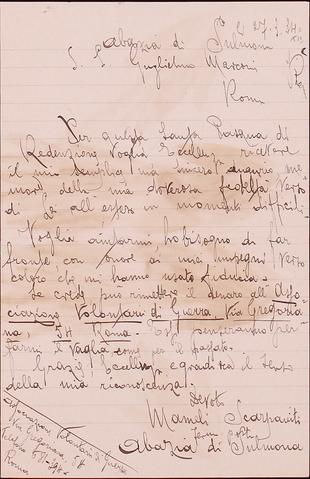 Abazia di Sulmona 27-3-34
S. E. Guglielmo Marconi
Roma
Per questa Santa Pasqua di
Redenzione voglia Eccellenza ricevere
il mio semplice ma sincero augurio me
more della mia doverosa fedeltà verso
di Lei all'estero in momenti difficili.
Voglia aiutarmi ho bisogno di far
fronte con onore ai miei impegni verso
coloro che mi hanno usato fiducia.
Se crede può rimettere il denaro all'Asso
ciazione Volontari di Guerra, Via Gregoria
na 54 Roma. penseranno per
farmi il vaglia come per il passato.
Grazie Eccellenza e gradisca il senso
della mia riconoscenza.
Devoto
Mameli Scarpariti
Abazia di Sulmona
Associazione Volontari di Guerra
Via Gregoriana, 54
Roma